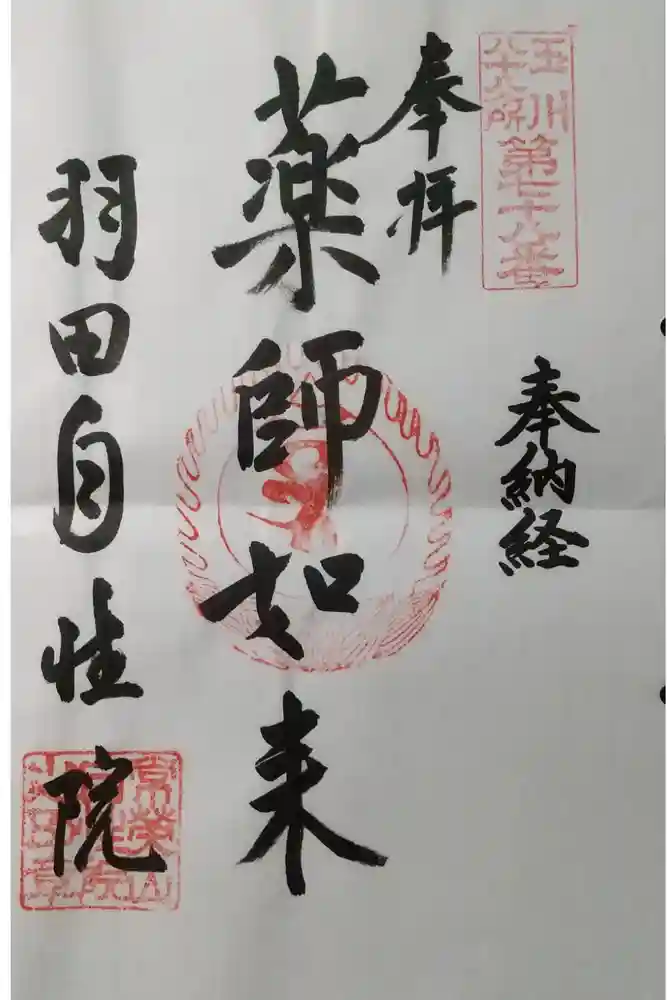 玉川
八十八ヶ所
第七十八番
奉納経
奉拝
薬師如来
羽田自性院
常榮山